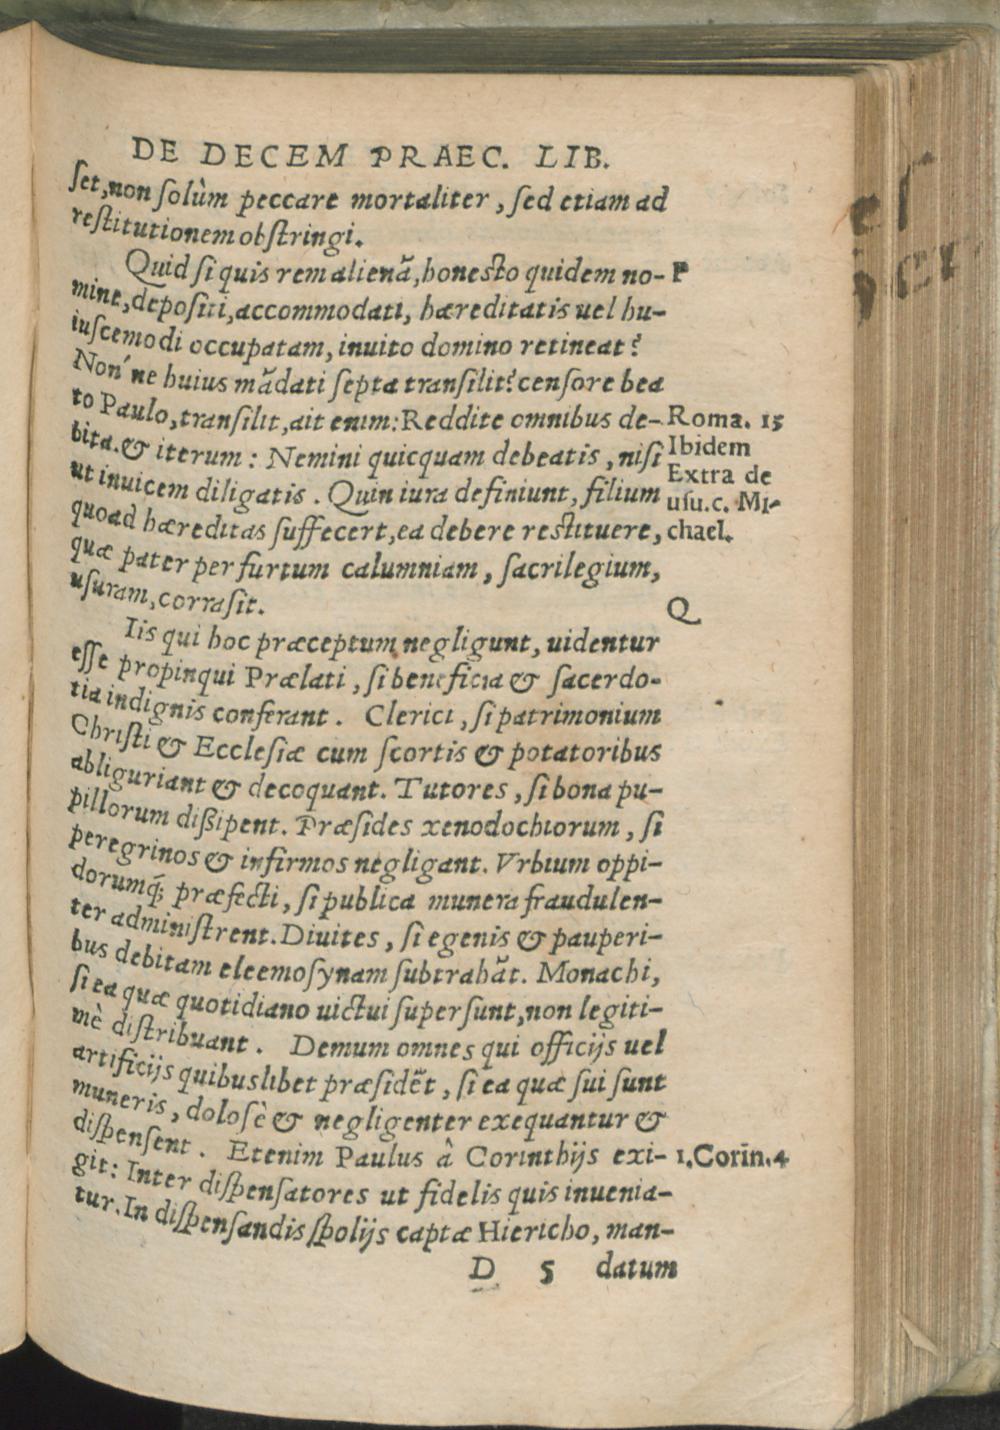 DE DECEM PRAEC. LIB.
ſet, non ſolùm peccare mortaliter, ſed etiam ad
reſtitutionem obſtringi.
Quid ſi quis rem alienã, honeſto quidem no- P
mine, depoſiti, accommodati, hæreditatis uel hu-
iuſcemodi occupatam, inuito domino retineat?
Non'ne huius mãdati ſepta tranſilit? cenſore bea
to Paulo, tranſilit, ait enim: Reddite omnibus de- Roma. 15
bita. & iterum: Nemini quicquam debeatis, niſi Ibidem
ut inuicem diligatis. Quin iura definiunt, filium Extra de
uſu.c. Mi-
quoad hæreditas ſuffecert, ea debere reſtituere, chael.
quæ pater per furtum calumniam, ſacrilegium,
uſuram, corraſit.
Q
Iis qui hoc præceptum negligunt, uidentur
eſſe propinqui Prælati, ſi beneficia & ſacerdo-
tia indignis conferant. Clerici, ſi patrimonium
Chriſti & Eccleſiæ cum ſcortis & potatoribus
abliguriant & decoquant. Tutores, ſi bona pu-
pillorum dißipent. Præſides xenodochiorum, ſi
peregrinos & infirmos negligant. Vrbium oppi-
dorumq́; præfecti, ſi publica munera fraudulen-
ter adminiſtrent. Diuites, ſi egenis & pauperi-
bus debitam eleemoſynam ſubtrahãt. Monachi,
ſi ea quæ quotidiano uictui ſuperſunt, non legiti-
mè diſtribuant. Demum omnes qui officijs uel
artificijs quibuslibet præſidẽt, ſi ea quæ ſui ſunt
muneris, doloſè & negligenter exequantur &
diſpenſent. Etenim Paulus â Corinthijs exi- 1.Corin̄.4
git: Inter diſpenſatores ut fidelis quis inuenia-
tur. In diſpenſandis ſpolijs captæ Hiericho, man-
D 5 datum